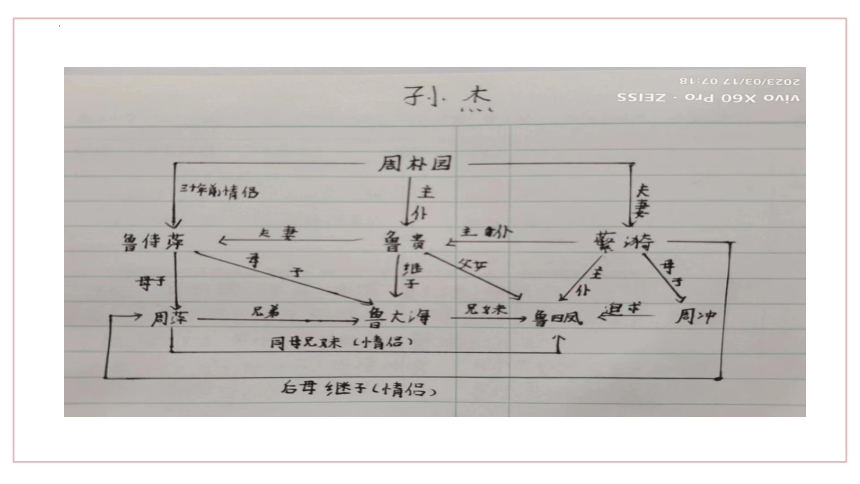 2023/03/17 07:18
vivo X60 Pro · ZEISS
孙杰
周朴园
三十年前情侣
主仆
夫妻
鲁侍萍
夫妻
鲁贵
主仆
蘩漪
母子
母子
继子
父女
主仆
母子
周萍
兄弟
鲁大海
兄妹
鲁四凤
追求
周冲
同母兄妹（情侣）
后母继子（情侣）